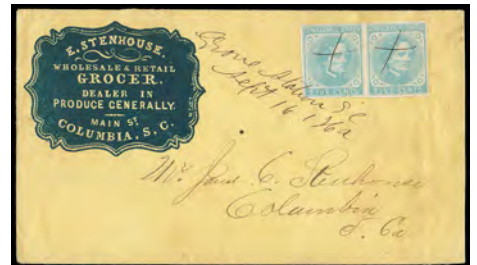 E. STENHOUSE.
WHOLESALE & RETAIL
GROCER.
DEALER IN
PRODUCE GENERALLY.
MAIN ST.
COLUMBIA, S. C.
Sept 16 1862
FIVE CENTS FIVE CENTS
Mr. C. Stenhouse
Columbia
S. Ca